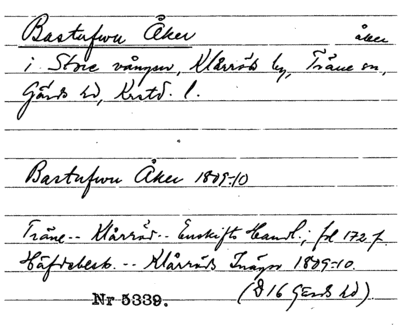 Bastufwu Åker åker
i Store vången, Klårröds by, Träne sn,
Gärds hd, Krstd. l.
Bastufwu Åker 1809-10
Träne -- Klårröd -- Enskifts Handl.; fol 172 f.
Häfdebesk. -- Klårröds Inägor 1809-10.
Nr 5339. (D 16 Gärds hd).